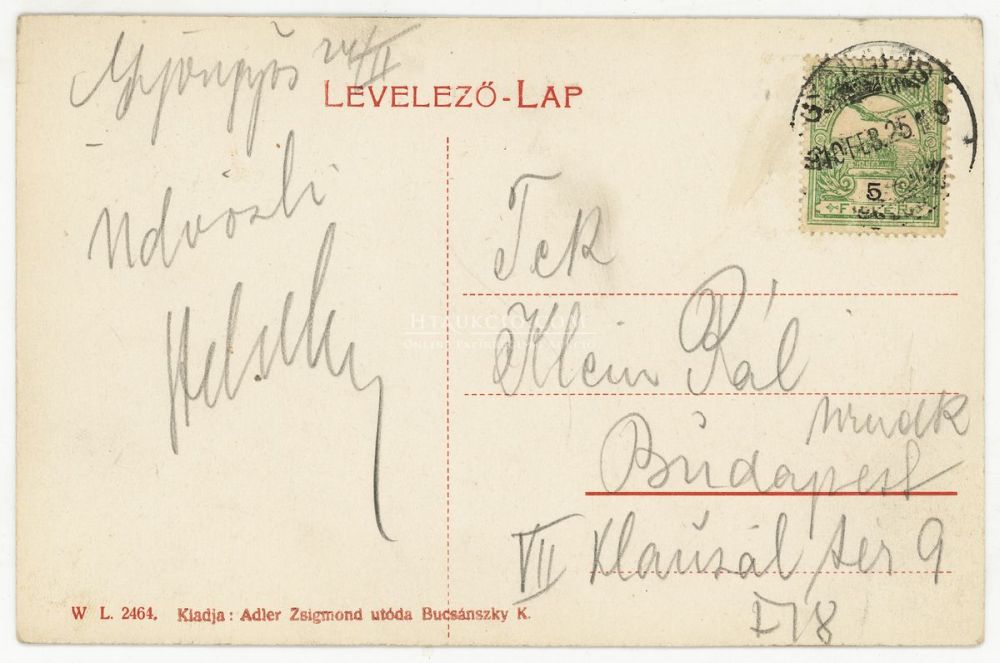 Gyöngyös 24/II
LEVELEZŐ-LAP
910 FEB. 25
5
Üdvözli
Tek
Klein Pál
urnak
Budapest
VII Klauzál tér 9
I/18
HTAUKCIO.COM
W L. 2464. Kiadja: Adler Zsigmond utóda Bucsánszky K.